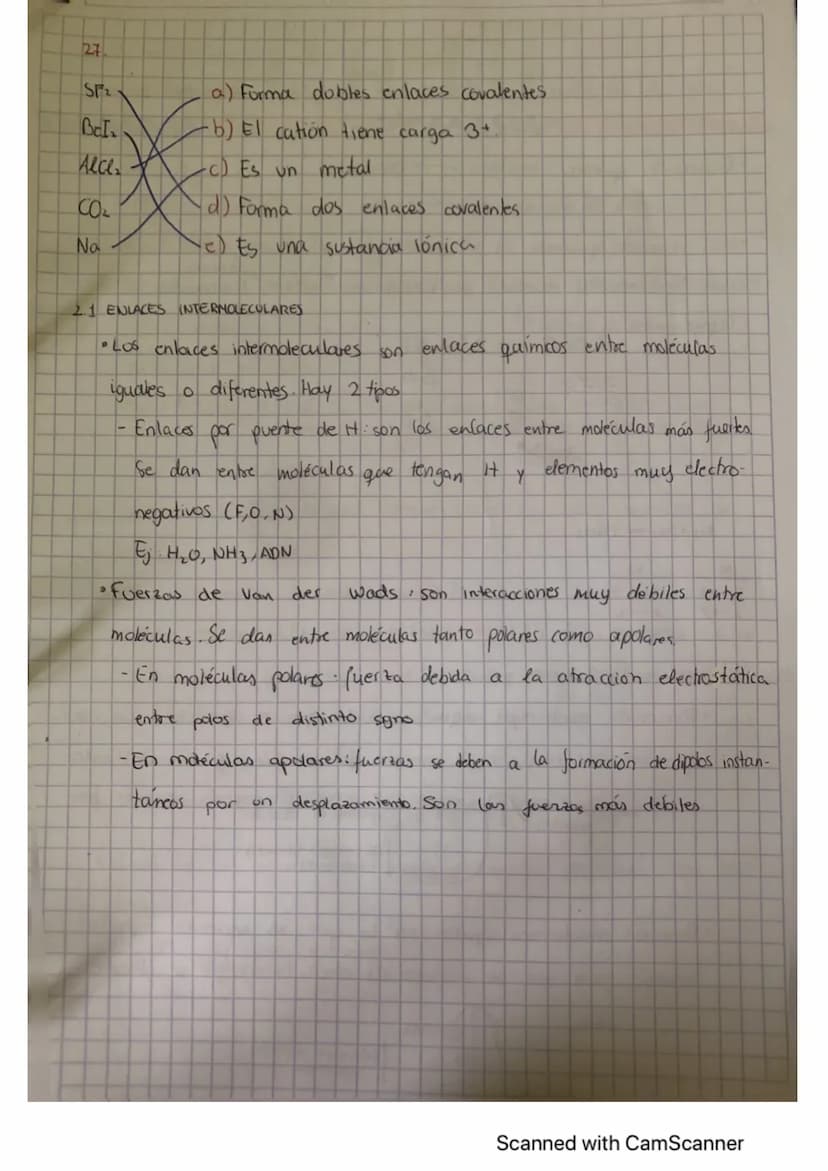 27.
SF₂ a) Forma dobles enlaces covalentes
BeI₂ b) El catión tiene carga 3+.
AlCl₃ c) Es un metal
CO₂ d) Forma dos enlaces covalentes
Na e) Es una sustancia iónica
2.1 ENLACES INTERMOLECULARES
• Los enlaces intermoleculares son enlaces químicos entre moléculas
iguales o diferentes. Hay 2 tipos
- Enlaces por puente de H: son los enlaces entre moléculas más fuertes
Se dan entre moléculas que tengan H y elementos muy electro-
negativos (F,O,N)
Ej. H₂O, NH₃, ADN
• Fuerzas de Van der Wads: son interacciones muy débiles entre
moléculas. Se dan entre moléculas tanto polares como apolares.
- En moléculas polares: fuerza debida a la atraccion electrostática
entre polos de distinto signo
- En moléculas apolares: fuerzas se deben a la formación de dipolos instan-
táneos por un desplazamiento. Son las fuerzas más debiles
Scanned with CamScanner